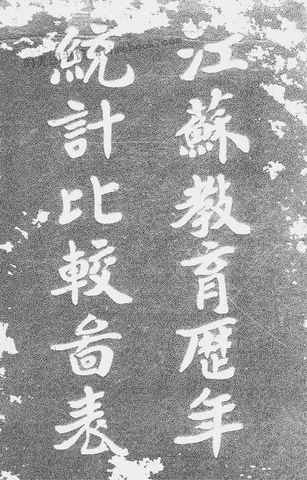 江蘇教育歷年
統計比較啚表